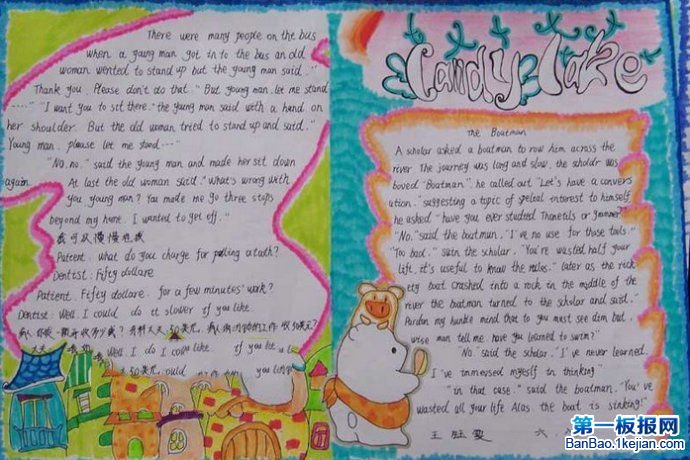 There were many people on the bus
when a young man got in to the bus an old
woman wented to stand up but the young man said."
Thank you. Please don't do that." But young man. let me stand
...." "I want you to sit there." the young man said with a hand on
her shoulder. But the old woman tried to stand up and said."
Young man. please let me stand....
"No. no." said the young man and made her sit down
again. At last the old woman said."What's wrong with
you young man? You made me go three stops
beyond my home. I wanted to get off."
我可以慢慢
Patient. what do you charge for pulling a tooth?
Dentist: Fifty dollare
Patient. Fifty dollare. for a few minutes' work?
Dentist: Well. I could do it slower if you like.
Well. I do I
like. if you
could
Candy Lake
The Boatman
A scholar asked a boatman to row him across the
river The journey was long and slow. the scholar was
boved "Boatman". he called out "Let's have a convers
ution." suggesting a topic of to himself
he asked "have you ever studied or
"No." said the boatman. "I've no use for those tools."
"Too bad." said the scholar. "You're wasted half your
life. it's useful to know the rules." later as the rick
ety boat crashed into a rock in the middle of the
river the boatman turned to the scholar and said."
Pardon my humble mind that to you must see dim but.
wise man tell me. have you learned to swim?"
"No." said the scholar. "I've never learned.
I've immersed myself in thinking"
"in that case." said the boatman. You've
wasted all your life Alas the boat is sinking!"
王 雯 六
第一板报网
BanBao.1kejian.com